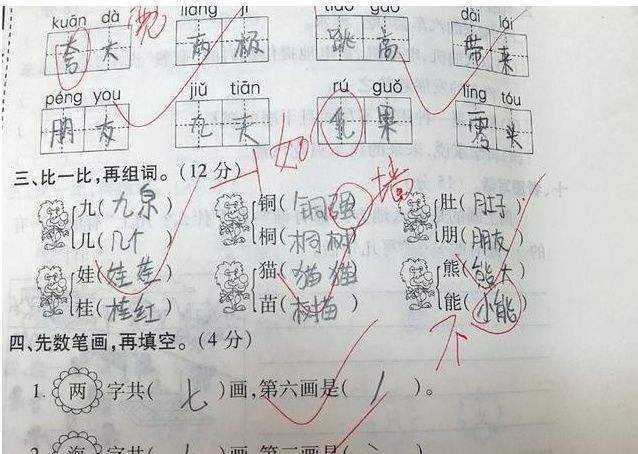 kuān dà liǎng jí tiào gāo dài lái
夸大 两极 跳高 带来
péng you jiǔ tiān rú guǒ líng tóu
朋友 九天 果 零头
如
三、比一比,再组词。(12分)
九(九泉) 铜(铜强) 墙 肚(肚子)
儿(几个) 桐(桐树) 朋(朋友)
娃(娃) 猫(猫猫) 熊(熊大)
桂(桂红) 苗(树苗) 能(小能)
不
四、先数笔画,再填空。(4分)
1. 两 字共(七)画,第六画是( )。
字共( )画,第二画是( )